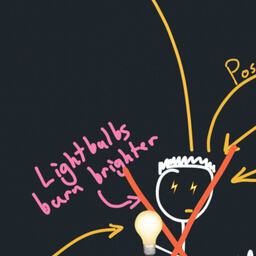 Pos
Lightbulbs
burn brighter